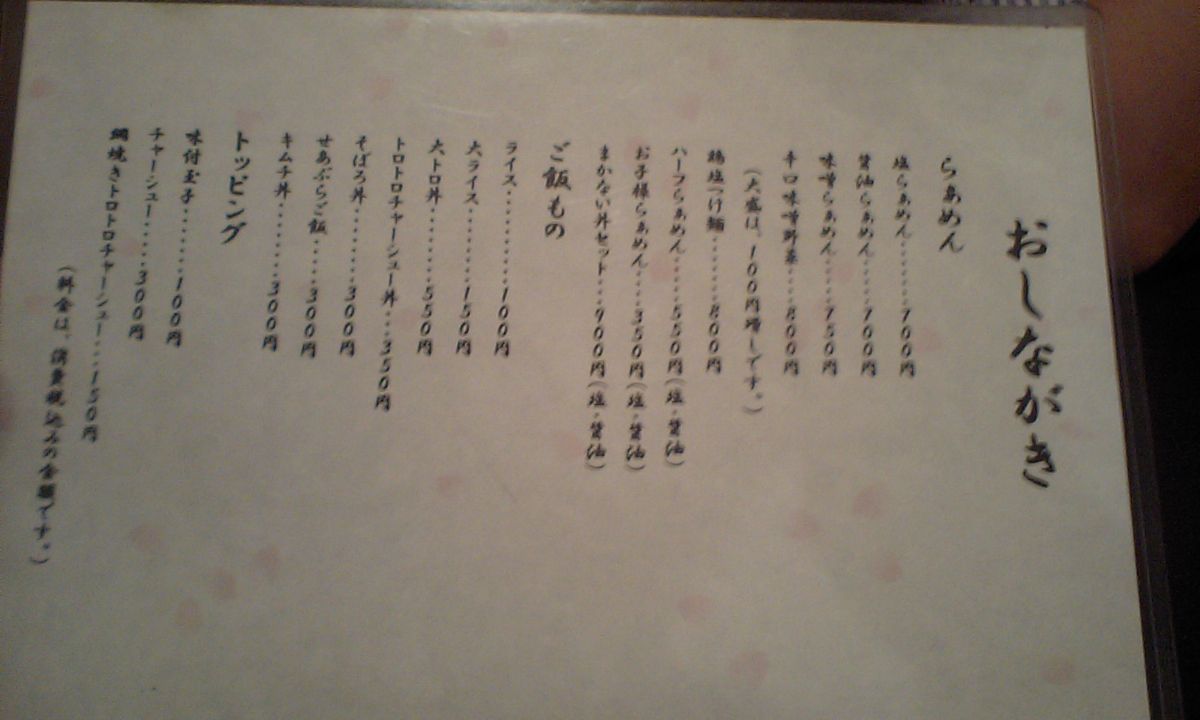 おしながき
らぁめん
塩らぁめん・・・・・・・700円
醤油らぁめん・・・・・・700円
味噌らぁめん・・・・・・750円
辛口味噌野菜・・・・・・800円
(大盛は、100円増しです。)
鶏塩つけ麺・・・・・・・800円
ハーフらぁめん・・・・・550円(塩・醤油)
お子様らぁめん・・・・・350円(塩・醤油)
まかない丼セット・・・900円(塩・醤油)
ご飯もの
ライス・・・・・・・・・・100円
大ライス・・・・・・・・・150円
大トロ丼・・・・・・・・・550円
トロトロチャーシュー丼・・・350円
そぼろ丼・・・・・・・・・300円
せあぶらご飯・・・・・・300円
キムチ丼・・・・・・・・・300円
トッピング
味付玉子・・・・・・・100円
チャーシュー・・・・・300円
網焼きトロトロチャーシュー・・・150円
(料金は、消費税込みの金額です。)